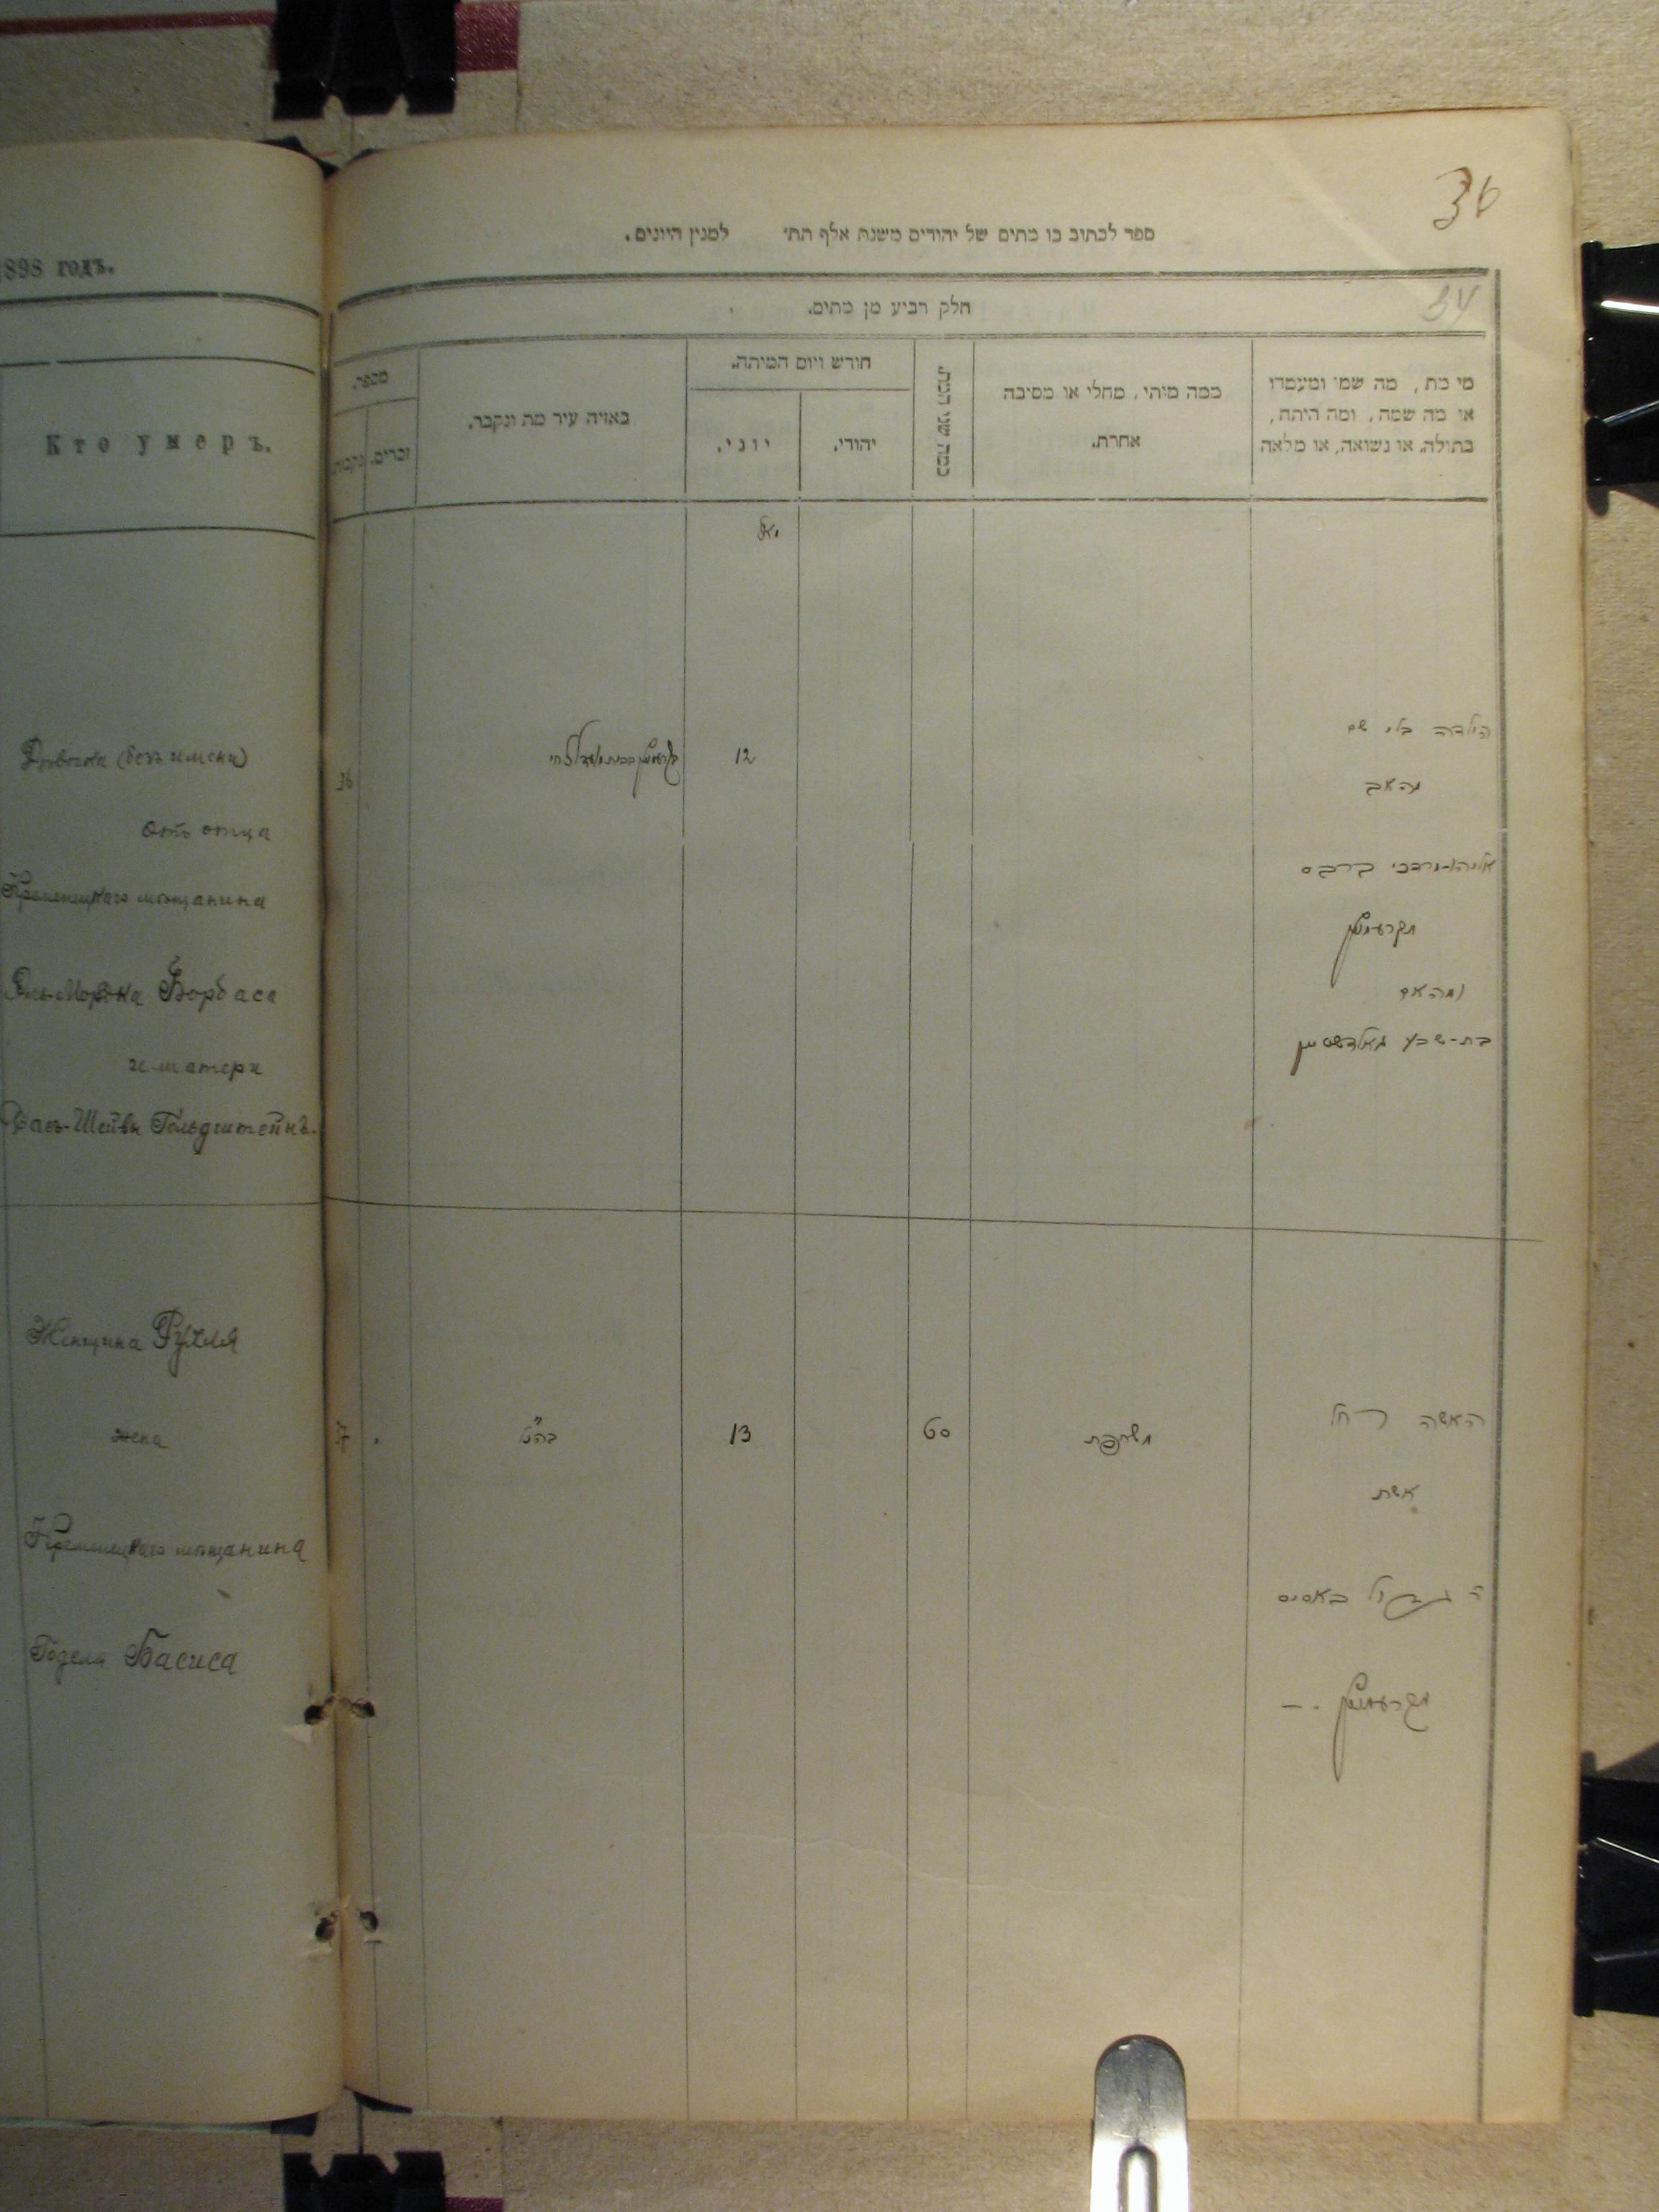 1898 годъ.
Кто умеръ.
Девочка (безъ имени)
отъ отца
Кременецкаго мѣщанина
Борбаса
и матери
Бась-Шейвы Гольдштейнъ.
Женщина Рухля
жена
Кременецкаго мѣщанина
Годеля Басиса
36
ספר לכתוב בו מתים של יהודים משנת אלף תת׳ למנין היונים.
34
חלק רביע מן מתים.
מי מת, מה שמו ומעמדו
או מה שמה, ומה היתה,
בתולה, או נשואה, או מלאה
ממה מיתי, מחלי או מסיבה
אחרת.
כמה שני המת.
חודש ויום המיתה.
יהודי.
יוני.
באיזה עיר מת ונקבר.
מספר.
זכרים.
נקבות.
מאי
הילדה בלי שם
מהאב
אליהו-מרדכי ברבס
מקרעמניץ
ומהאם
בת-שבע גאלדשטיין
12
36
האשה רחל
אשת
באסיס
מקרעמניץ . —
משרפת
60
13
כהנ״ל
37